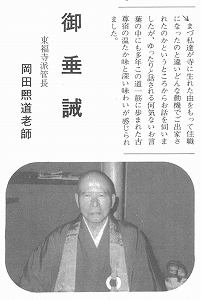 まづ私達が寺に生れた由をもって住職
になったのと違いどんな動機でご出家さ
れたのかというところからお話を伺いま
したが、ゆったりと話される何気ないお言
葉の中にも多年この道一筋に歩まれた古
尊宿の温たか味と深い味わいが感じられ
ました。
御垂誡
東福寺派管長
岡田熙道老師